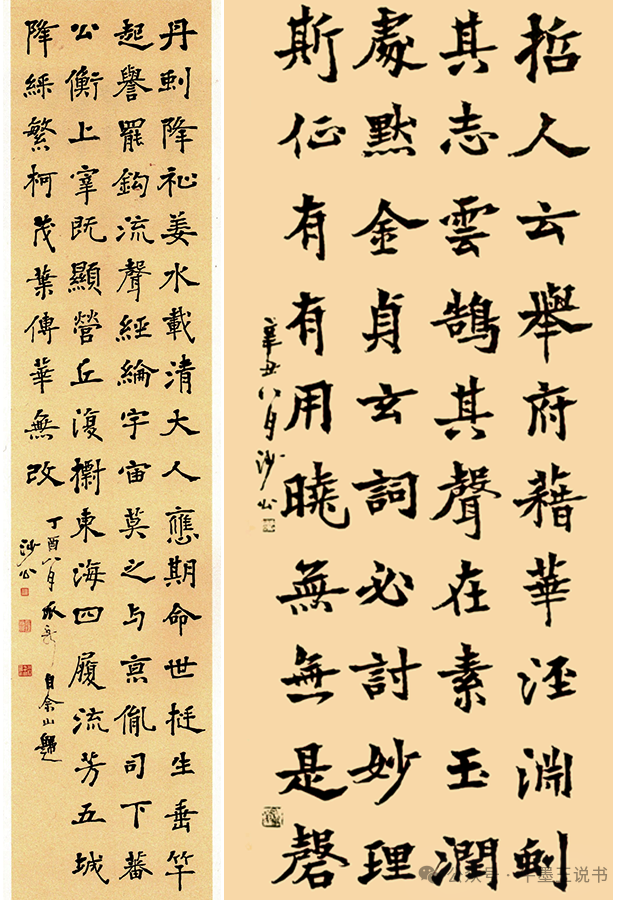 丹降祉姜水載清大人應期命世挺生垂竿
起譽罷鈎流聲經綸宇宙莫之与京胤司下蕃
公衡上宰既顯營丘復東海四履流芳五城
降綵繁柯茂葉傳華無改
丁酉八月
沙公
哲人云舉府藉華淵
其志雲鵠其聲在素玉潤
處默金貞玄詞必討妙理
斯征有有用曉無無是磬
辛丑八月沙公
公众号 · 墨王说书